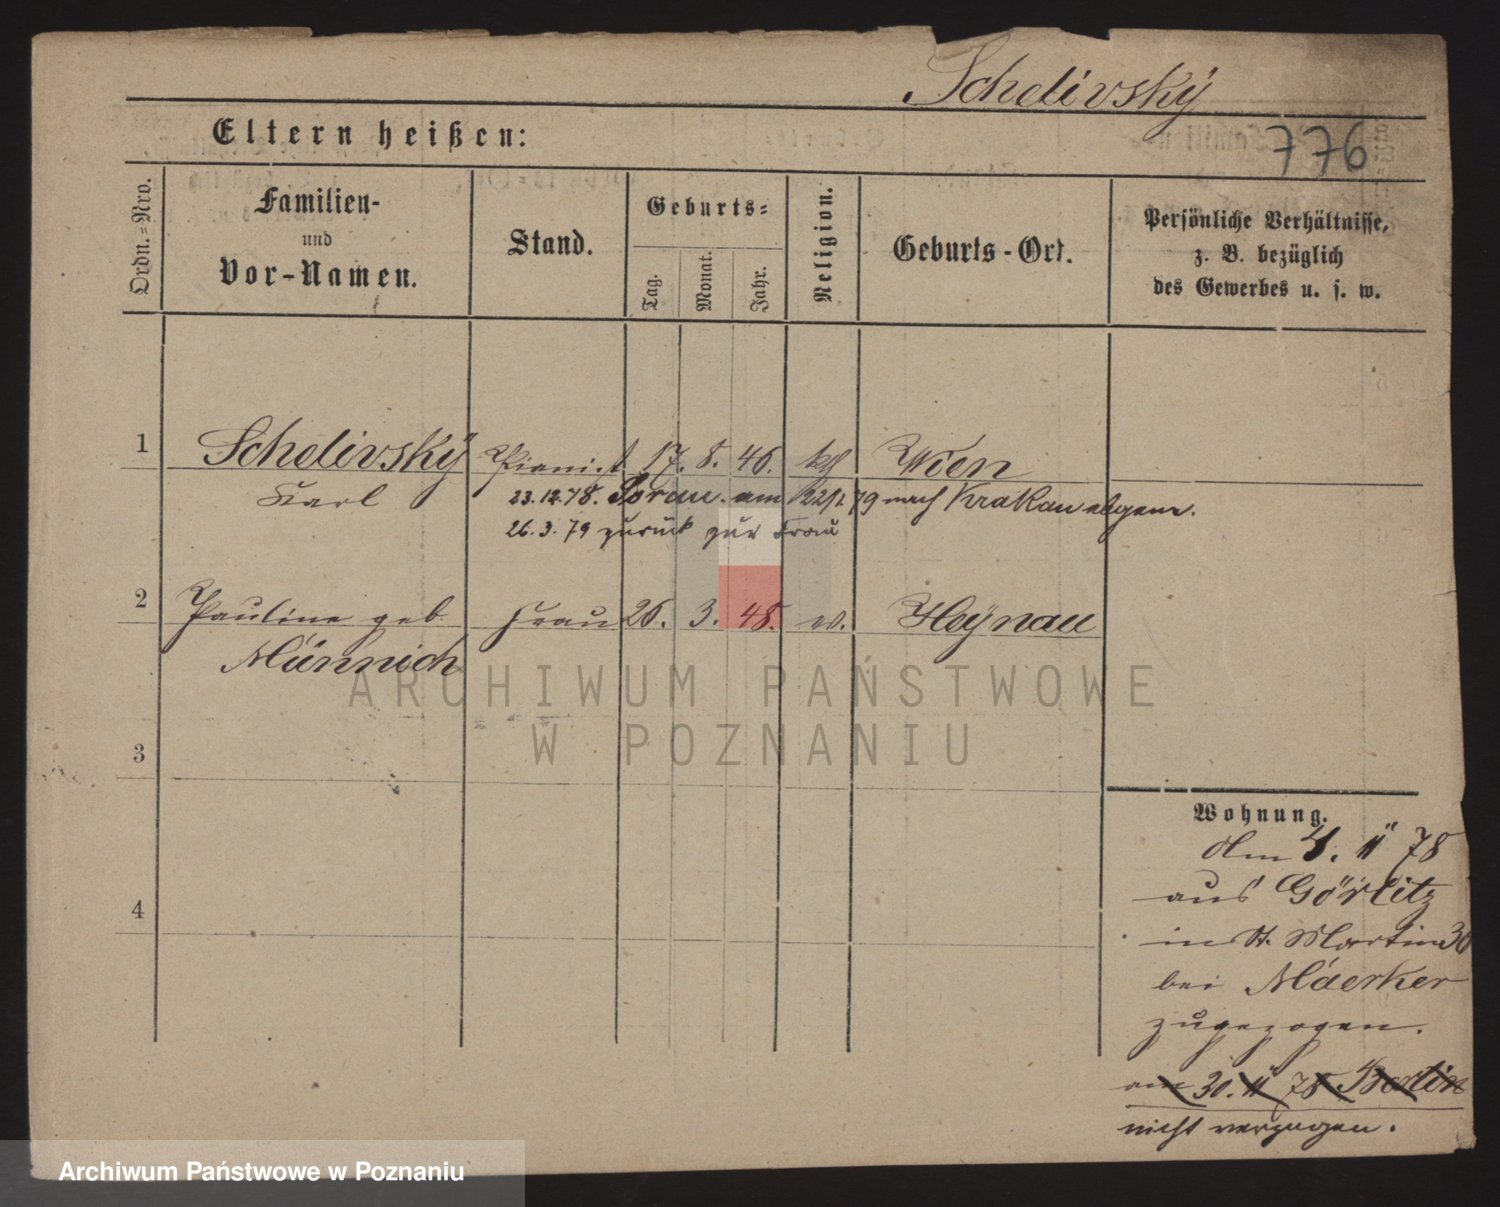 Schelivský
Eltern heißen:
776
Ordn.=Nro.
Familien-
und
Vor-Namen.
Stand.
Geburts=
Tag.
Monat.
Jahr.
Religion.
Geburts-Ort.
Persönliche Verhältnisse,
z. B. bezüglich
des Gewerbes u. s. w.
1 Schelivský Pianist 17. 8. 46. kth Wien
Karl
23.12.78. Sorau. am 22/1 79 nach Krakau abgem.
26.3.79 zurück zur Frau
2 Pauline geb Frau 26. 3. 48. ev. Haynau
Münnich
ARCHIWUM PAŃSTWOWE
W POZNANIU
3
4
Wohnung.
Am 4. 11 78
aus Görlitz
in St. Martin 30
bei Maerker
zugezogen.
am 30. 11 78 Berlin
nicht verzogen.
Archiwum Państwowe w Poznaniu